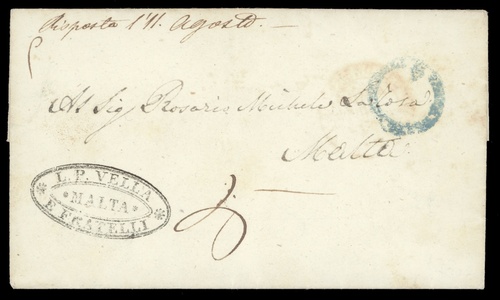 Risposta l'11. Agosto.
Al Sig Rosario Michele LaRosa
Malta
L. P. VELLA
MALTA
E FRATELLI